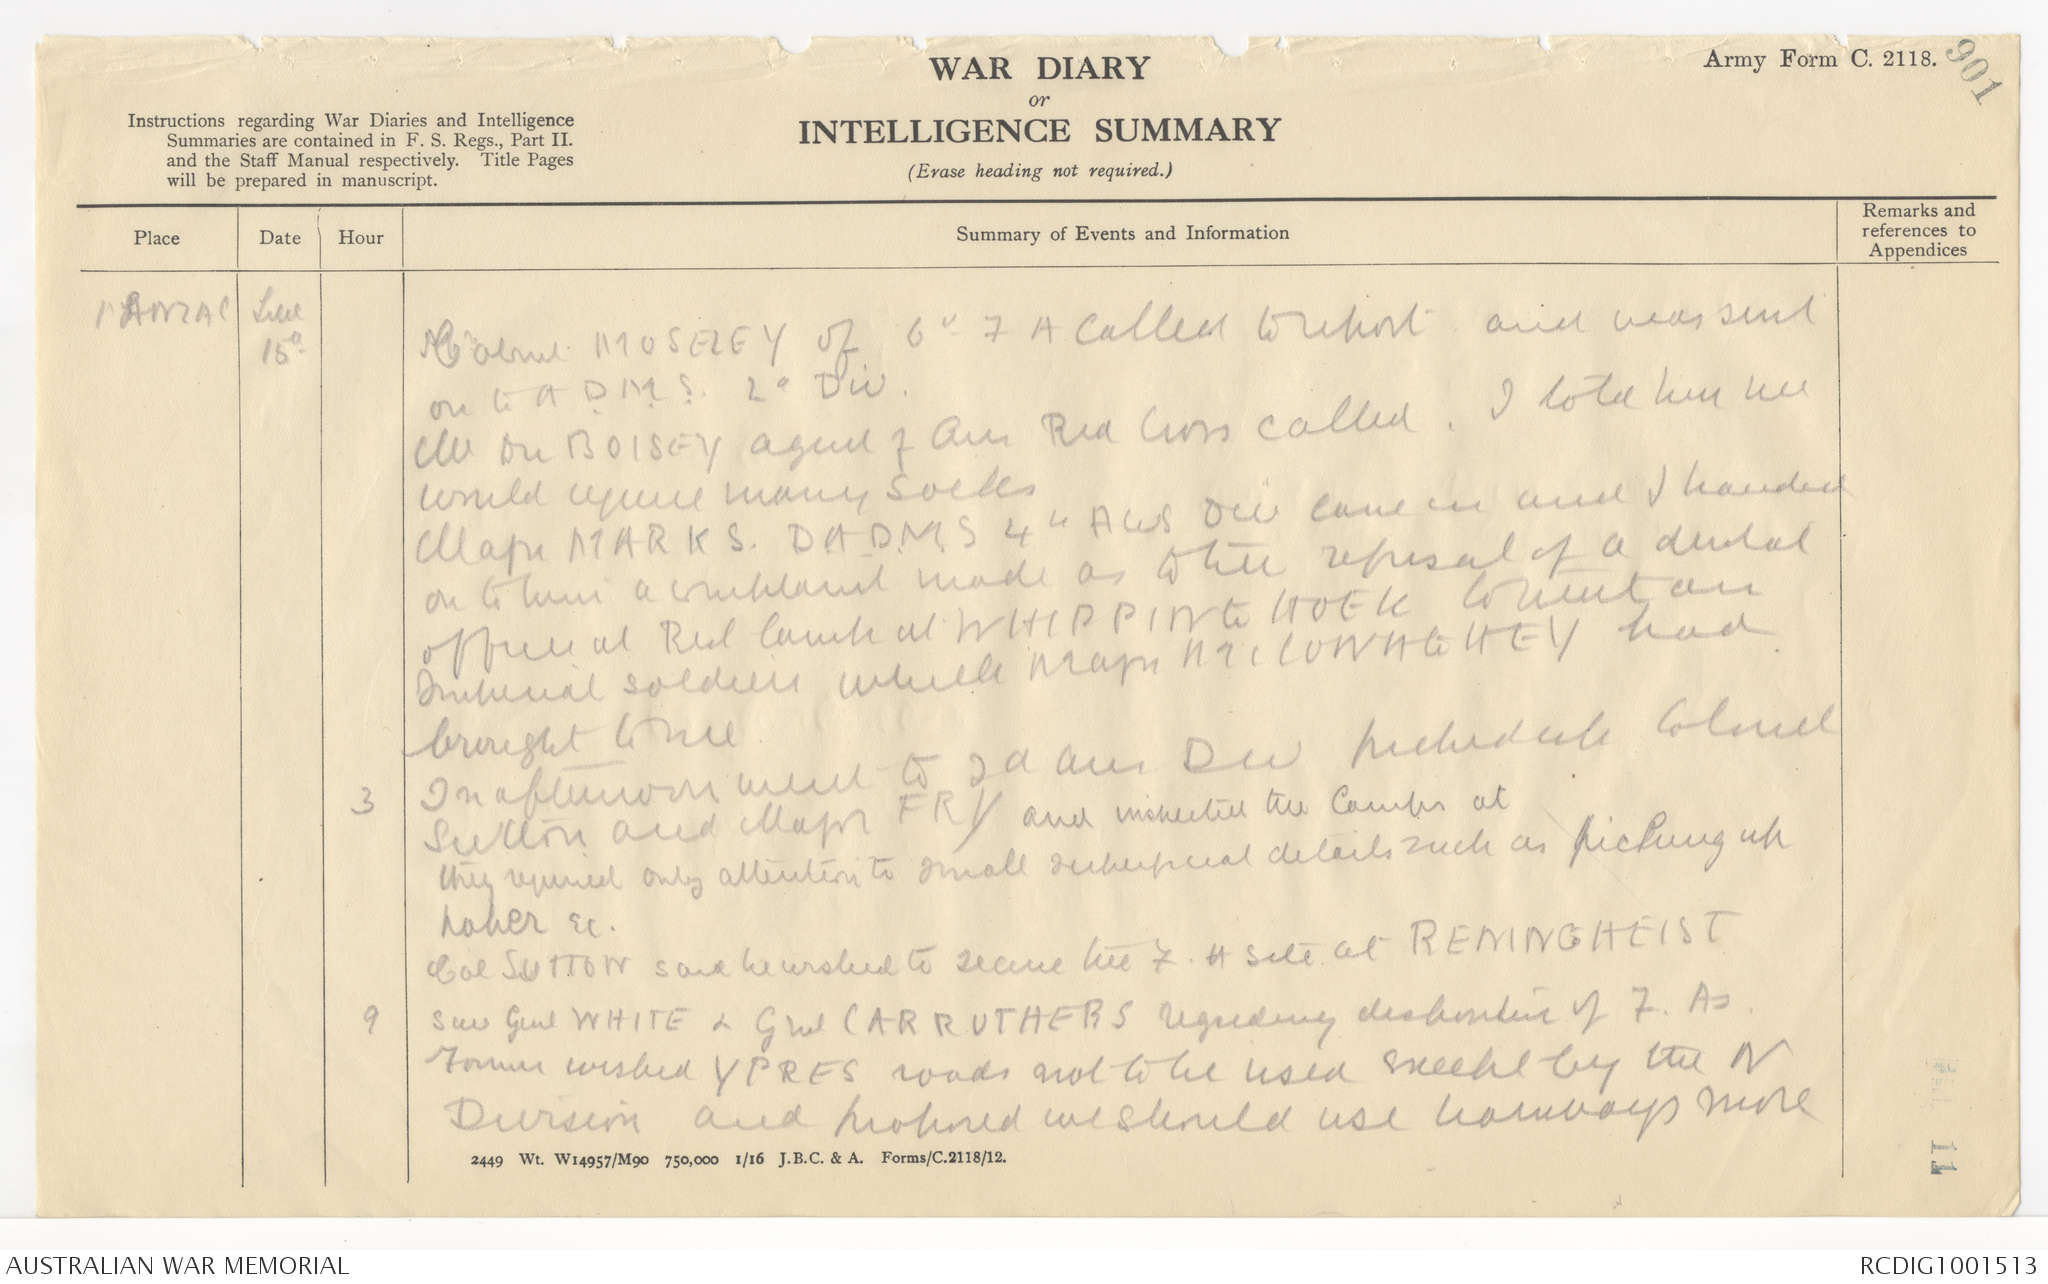 WAR DIARY
or
INTELLIGENCE SUMMARY
(Erase heading not required.)
Army Form C. 2118.
901
Instructions regarding War Diaries and Intelligence
Summaries are contained in F. S. Regs., Part II.
and the Staff Manual respectively. Title Pages
will be prepared in manuscript.
Place
Date
Hour
Summary of Events and Information
Remarks and
references to
Appendices
1 ANZAC
15
Colonel MOSELEY of 6" F A called to report and was sent
on to A.D.M.S. 2d Div.
BOISEY agent of Aus Red Cross called. I told him we
would require many socks
Major MARKS. D.A.D.M.S 4th Aus Div came in and I handed
on to him a complaint made as to the refusal of a dental
officer at Rest Camp at WHIPPINGHOEK to treat an
Imperial soldier which Major McCONAGHEY had
brought to me
3
In afternoon went to 2d Aus Div picked up Colonel
Sutton and Major FRY and inspected the Camps at
they required only attention to small details such as picking up
paper &c.
Col SUTTON said he wished to secure the F. A site at RENINGHEIST
9
Saw Genl WHITE & Genl CARRUTHERS regarding disposition of F. As.
Former wished YPRES roads not to be used except by the N
Division and proposed we should use tramways more
2449 Wt. W14957/M90 750,000 1/16 J.B.C. & A. Forms/C.2118/12.
11
AUSTRALIAN WAR MEMORIAL
RCDIG1001513